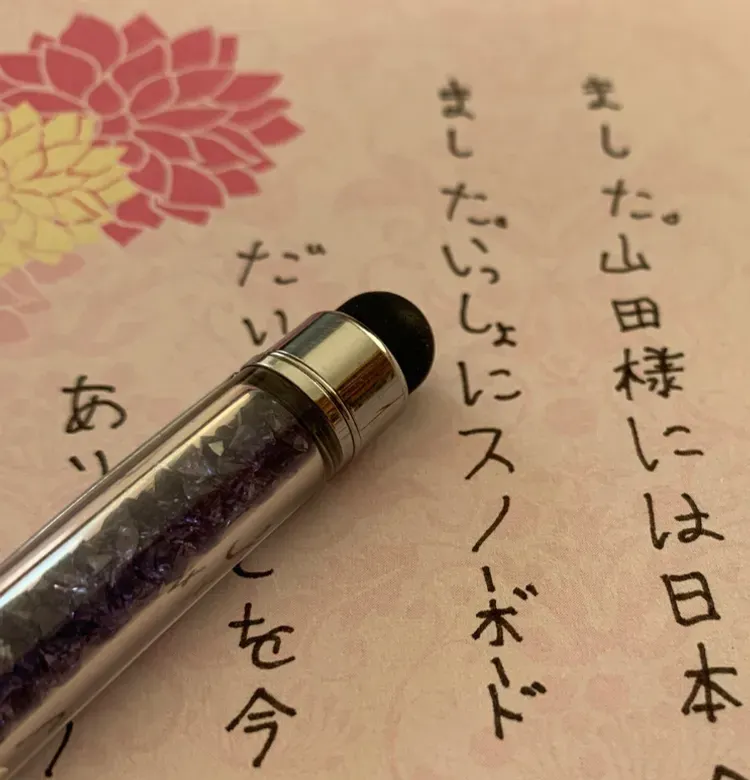 ました。山田様には日本
ました。いっしょにスノーボード
だい
を今
あ